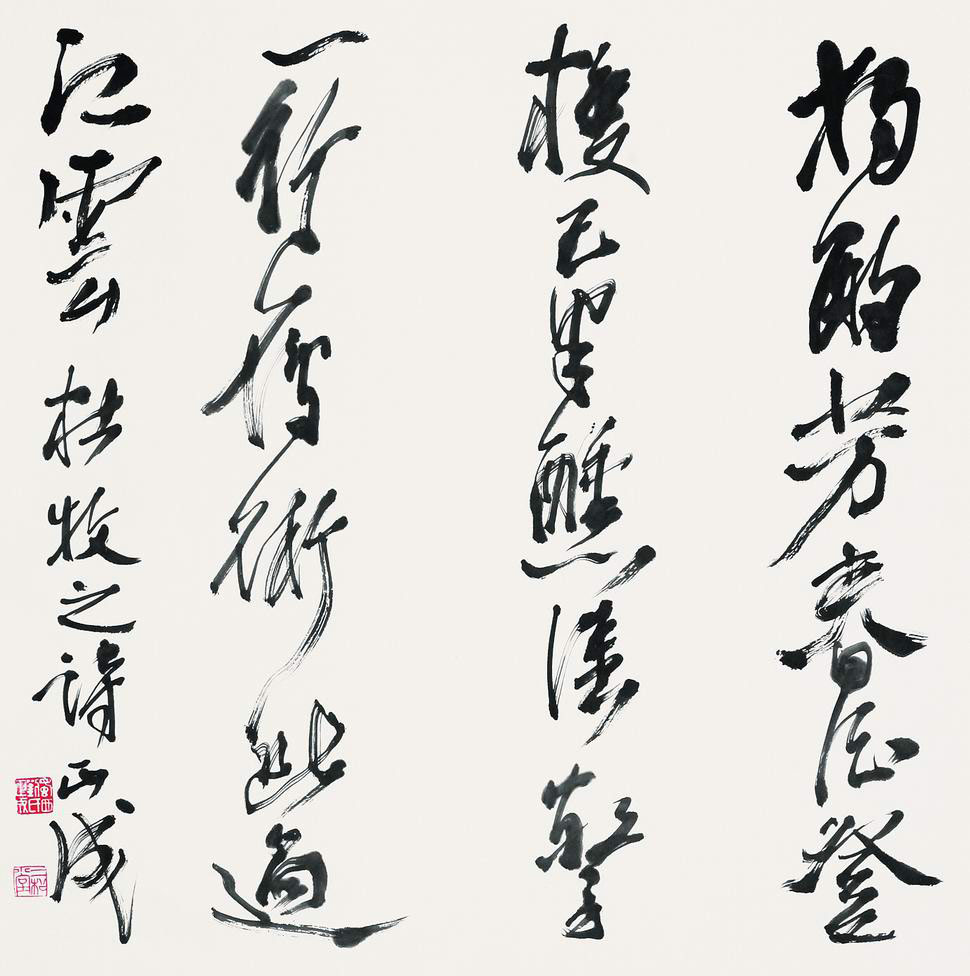 獨酌芳春酒登
樓已半醺誰驚
一行雁衝斷過
江雲 杜牧之詩 正成